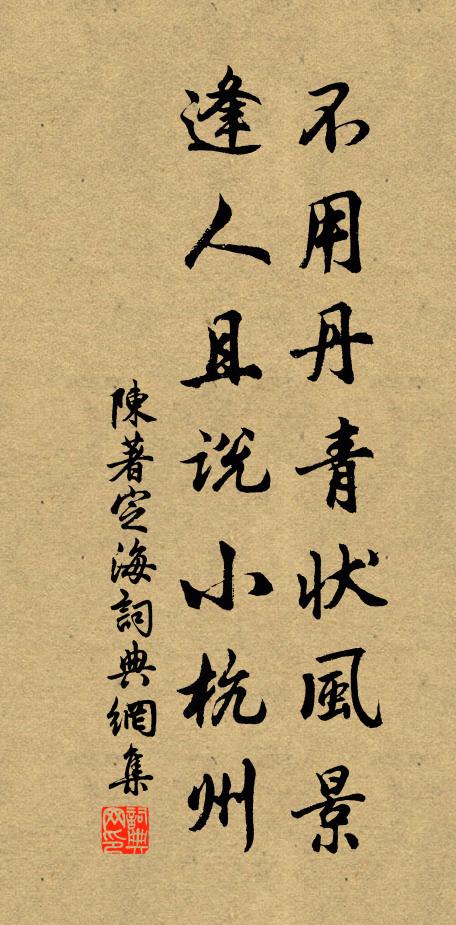 不用丹青状風景
逢人且説小杭州
陳著定海詞典網集
詞典網印